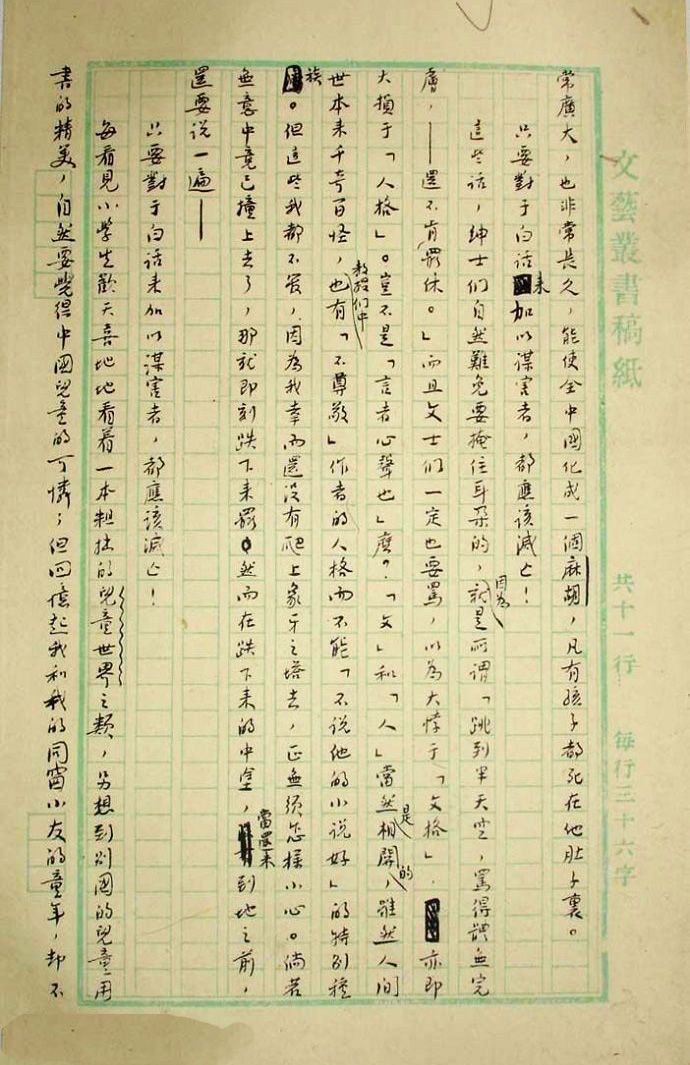 文藝叢書稿紙 共十一行 每行三十六字
常廣大,也非常長久,能使全中國化成一個麻胡,凡有孩子都死在他肚子裏。
只要對于白話来加以謀害者,都應該滅亡!
這些話,紳士們自然難免要掩住耳朵的,因為就是所謂「跳到半天空,罵得體無完
膚,——還不肯罷休。」而且文士們一定也要罵,以為大悖于「文格」,亦即
大損于「人格」。豈不是「言者心聲也」麽?「文」和「人」當然是相關的,雖然人間
世本来千奇百怪,教授們中也有「不尊敬」作者的人格而不能「不说他的小说好」的特别種
族。但這些我都不管,因為我幸而還沒有爬上象牙之塔去,正無須怎樣小心。倘若
無意中竟已撞上去了,那就即刻跌下来罷。然而在跌下来的中途,當還未到地之前,
還要说一遍——
只要對于白話来加以謀害者,都應該滅亡!
每看見小學生歡天喜地地看着一本粗拙的兒童世界之類,另想到别國的兒童用
書的精美,自然要覺得中國兒童的可憐;但回憶起我和我的同窗小友的童年,却不